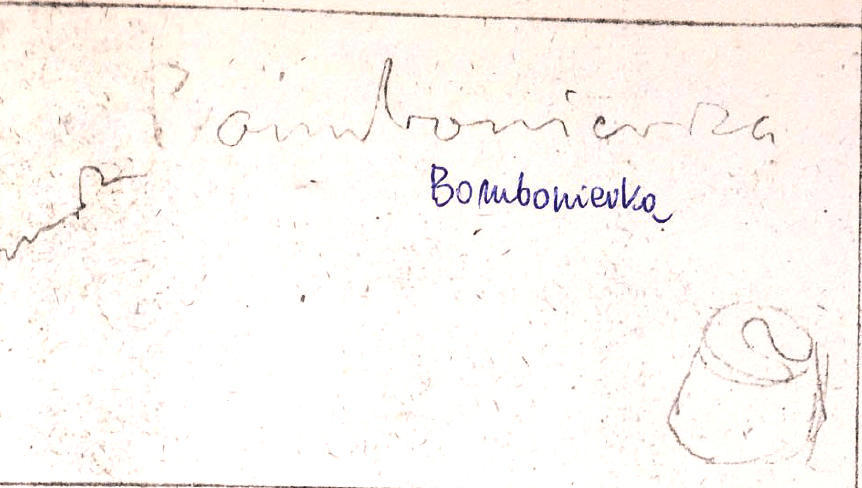 Bombonierka
Bombonierka